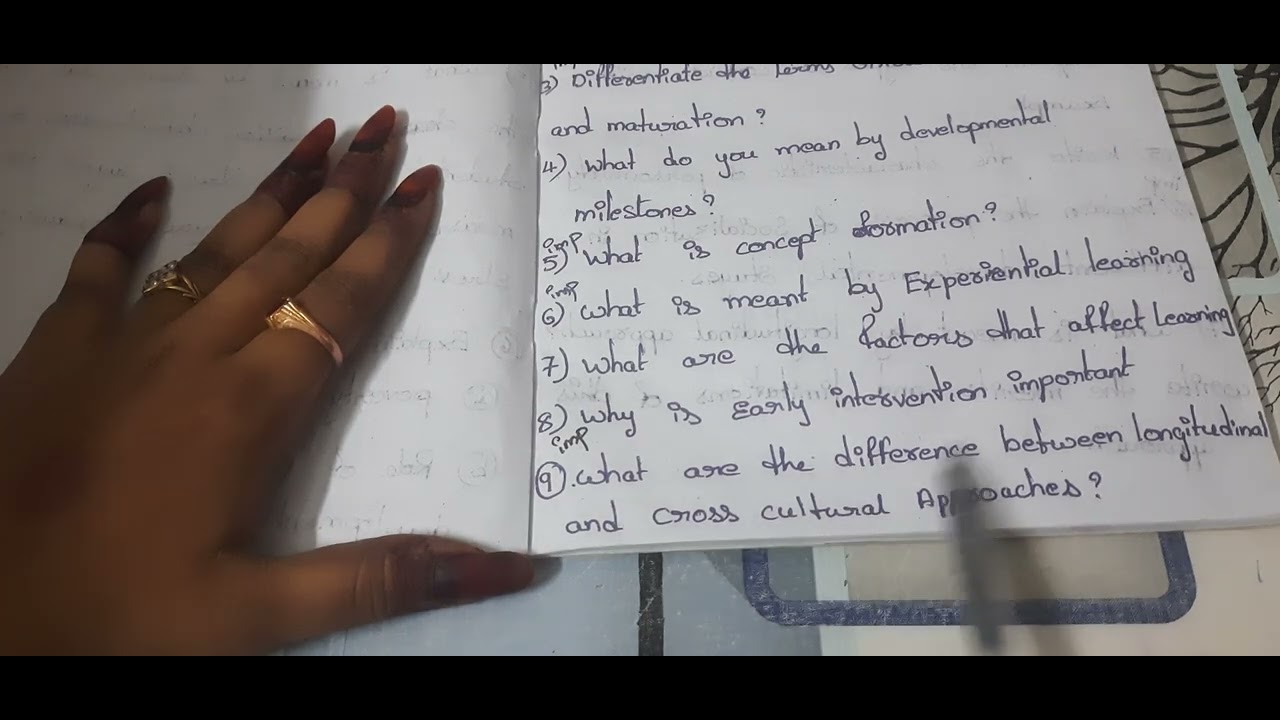 3) Differentiate the terms
and maturation?
4) What do you mean by developmental
milestones?
imp
5) What is concept formation?
imp
6) What is meant by Experiential learning
7) What are the factors that affect Learning
8) Why is Early intervention important
imp
9). What are the difference between longitudinal
and cross cultural Approaches?